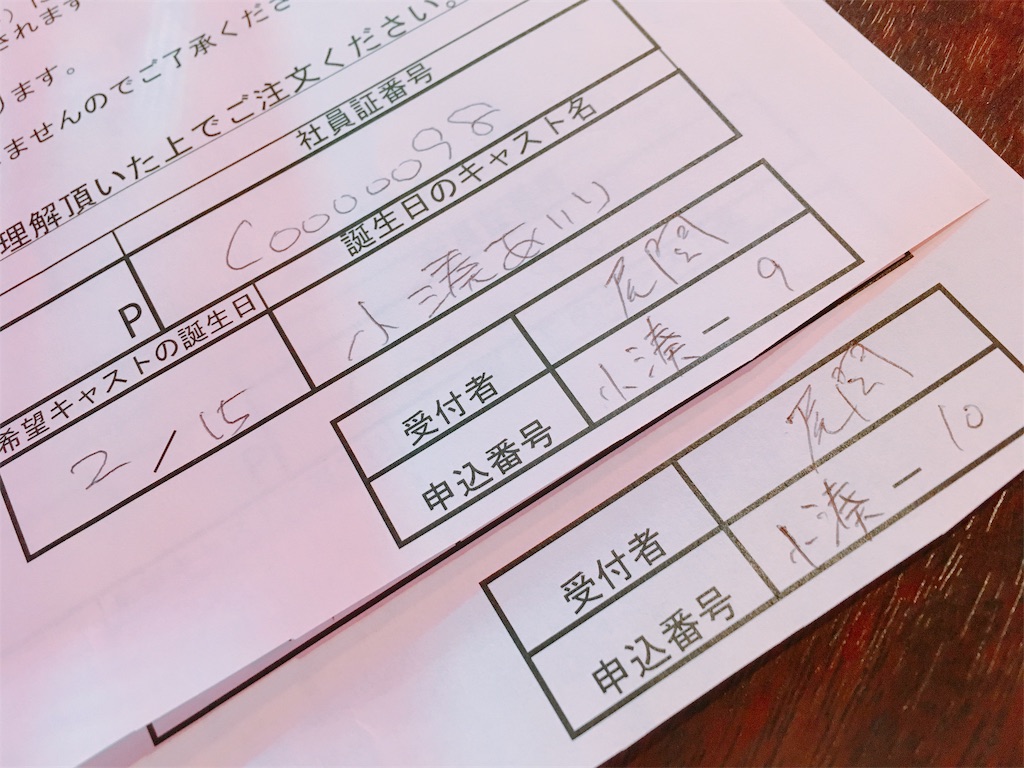 )に
されます
ります。
ませんのでご了承くださ
理解頂いた上でご注文ください。
社員証番号
C0000098
P
誕生日のキャスト名
小湊あいり
希望キャストの誕生日
2/15
受付者
尾関
申込番号
小湊-9
受付者
尾関
申込番号
小湊-10